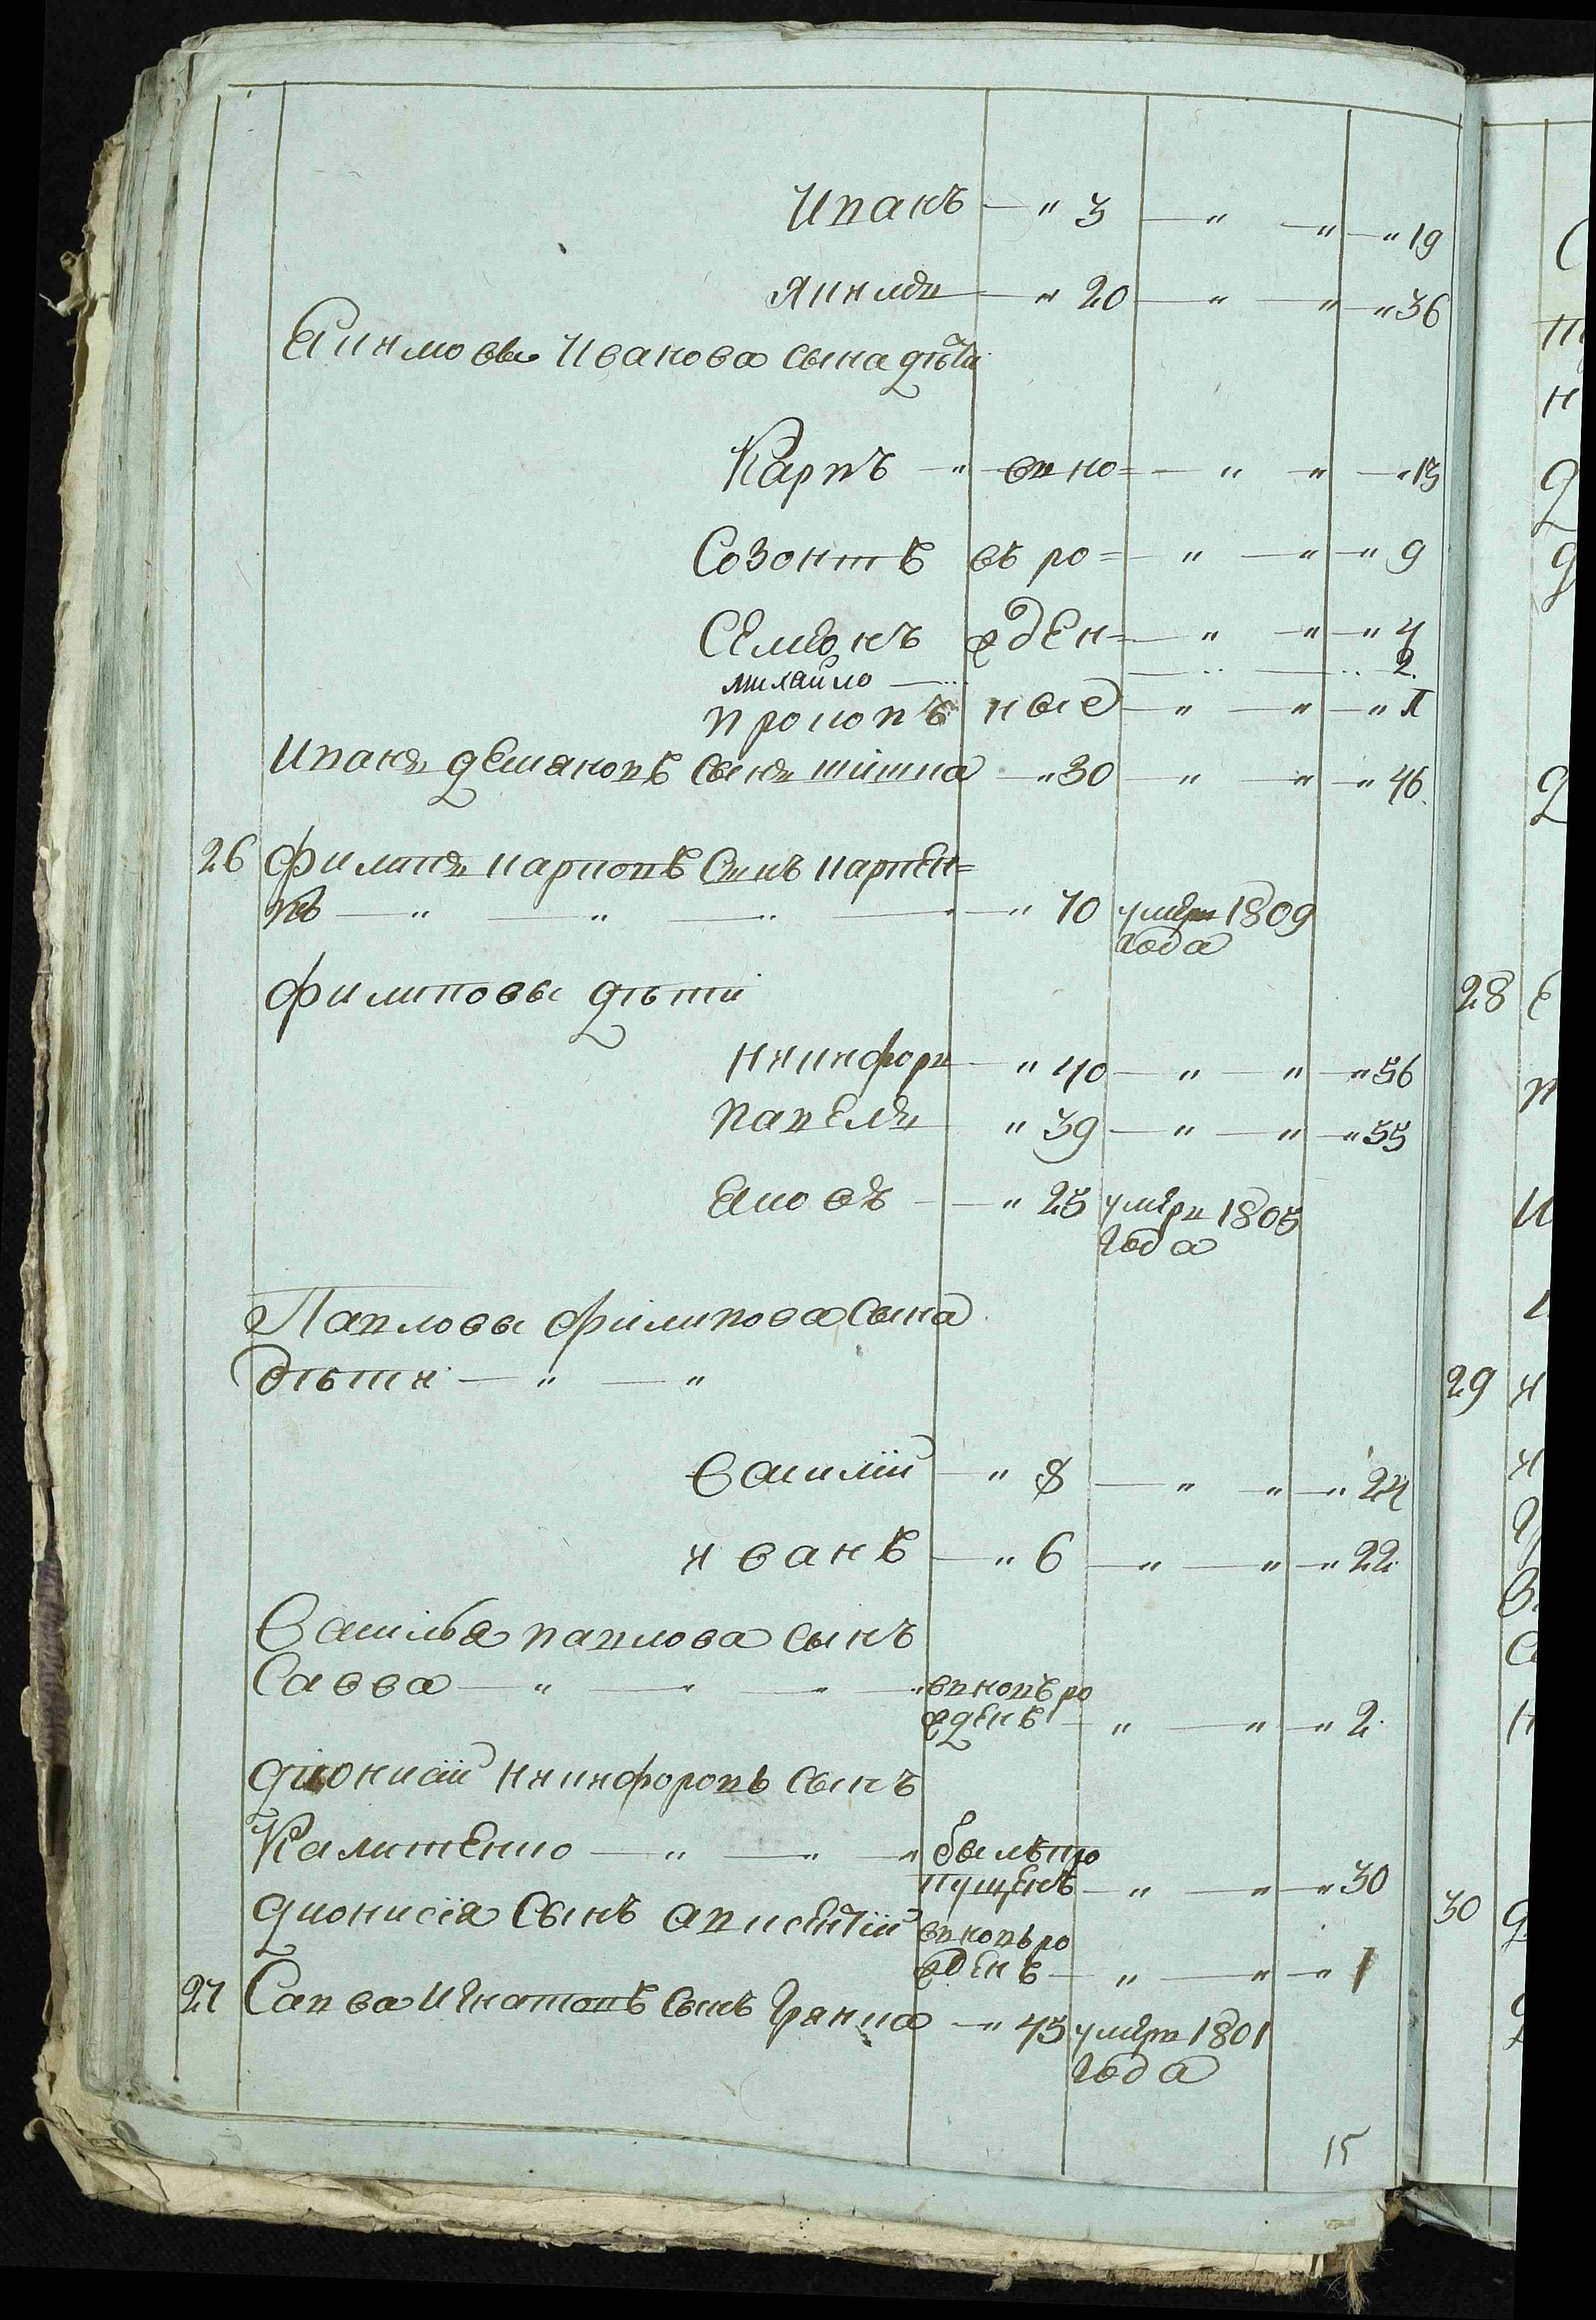 Иванъ — " 3 — " — " — " 19
Якимъ — " 20 — " — " — " 36
Екимовы Иванова сына дѣти
Карпъ — " вно= — " — " — " 13
Созонтъ въ ро= — " — " — " 9
Семіонъ жден= — " — " — " 4
михайло — .. — .. — .. 2.
прокопъ ные — " — " — " 1
Иванъ демяновъ сынъ шишка — " 30 — " — " — " 46.
26 филипъ карповъ сынъ карпен=
ко — " — " — " — " 70 умеръ 1809
года
филиповы дѣти
никифоръ — " 40 — " — " — " 56
павелъ " 39 — " — " — " 55
Яковъ — " 25 умеръ 1805
года
Павловы филипова сына
дѣти — " — "
василій — " 8 — " — " — " 24
иванъ — " 6 — " — " — " 22.
василья павлова сынъ
Савва — " — " — " — " вновъ ро
жденъ — " — " — " 2.
діонисій никифоровъ сынъ
Калитенко — " — " — " былъ про
пущенъ — " — " — " 30
дионисія сынъ авксентій вновь ро
жденъ — " — " — " 1
27 Савва Игнатовъ сынъ — " 45 умеръ 1801
года
15
28
29
30